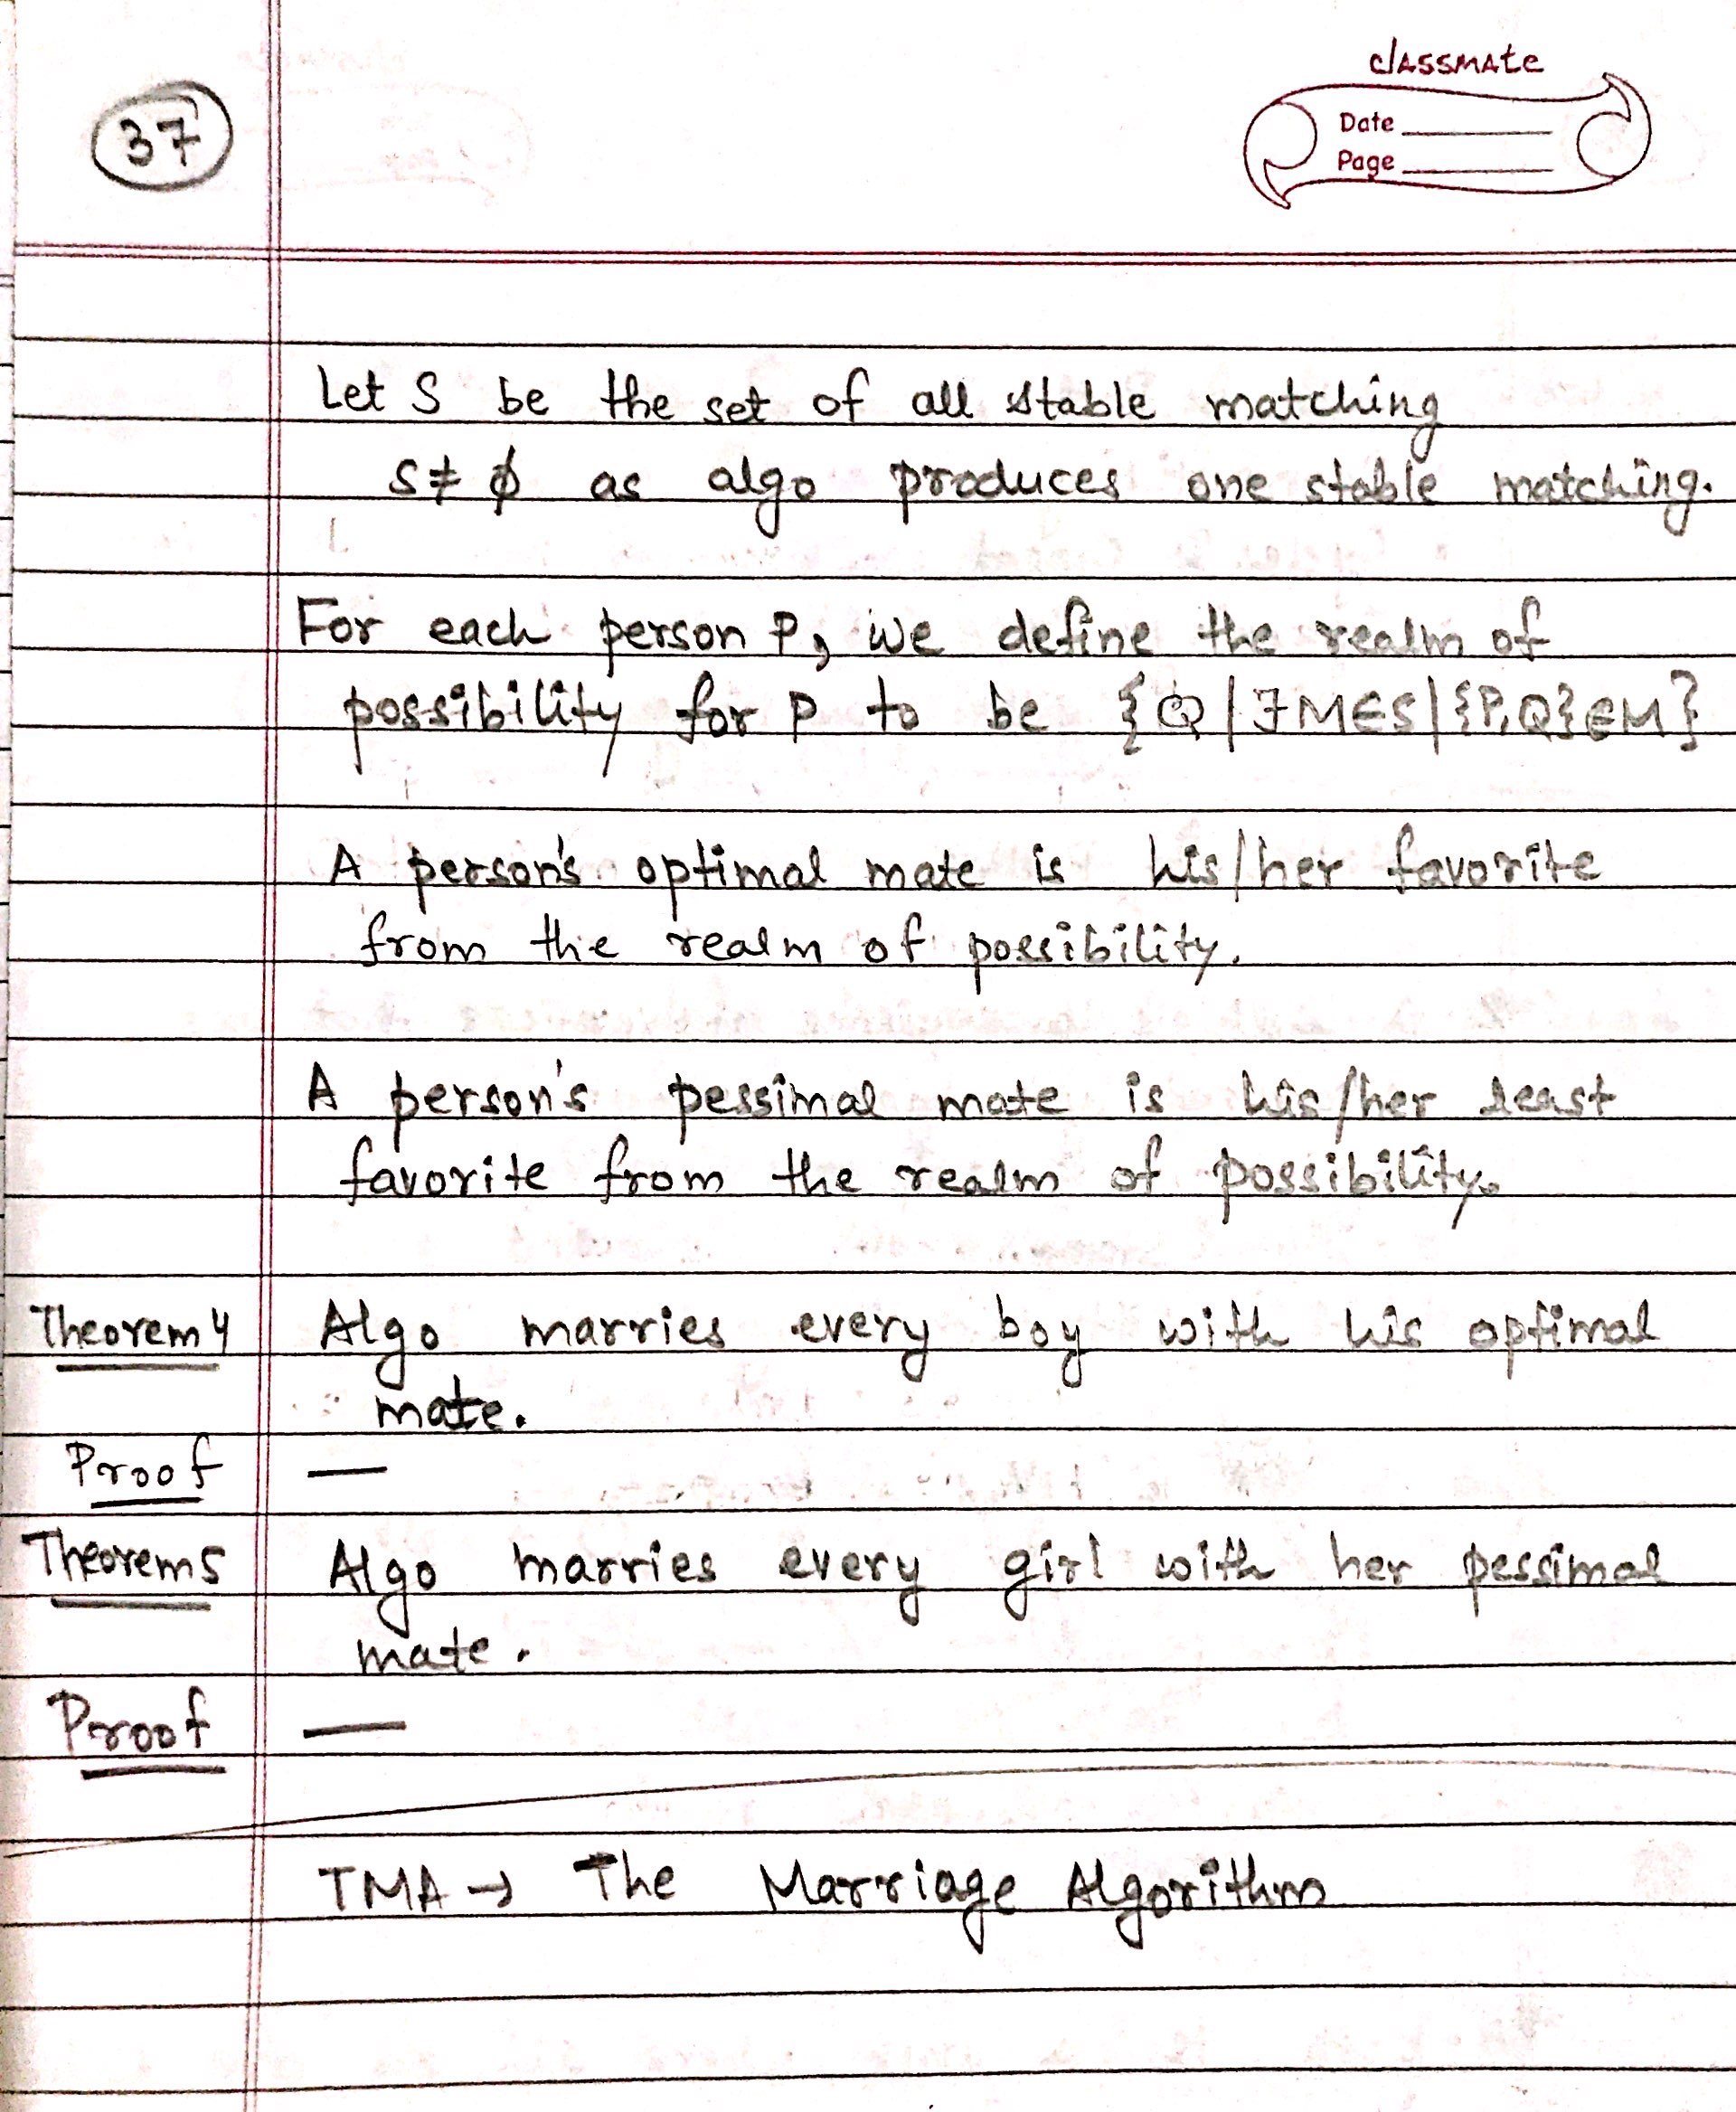 37
classmate
Date
Page
Let S be the set of all stable matching
S ≠ ϕ as algo produces one stable matching.
For each person P, we define the realm of
possibility for P to be {Q | ∃ M ∈ S | {P, Q} ∈ M}
A person's optimal mate is his/her favorite
from the realm of possibility.
A person's pessimal mate is his/her least
favorite from the realm of possibility.
Theorem 4 Algo marries every boy with his optimal
mate.
Proof —
Theorem 5 Algo marries every girl with her pessimal
mate.
Proof —
TMA → The Marriage Algorithm